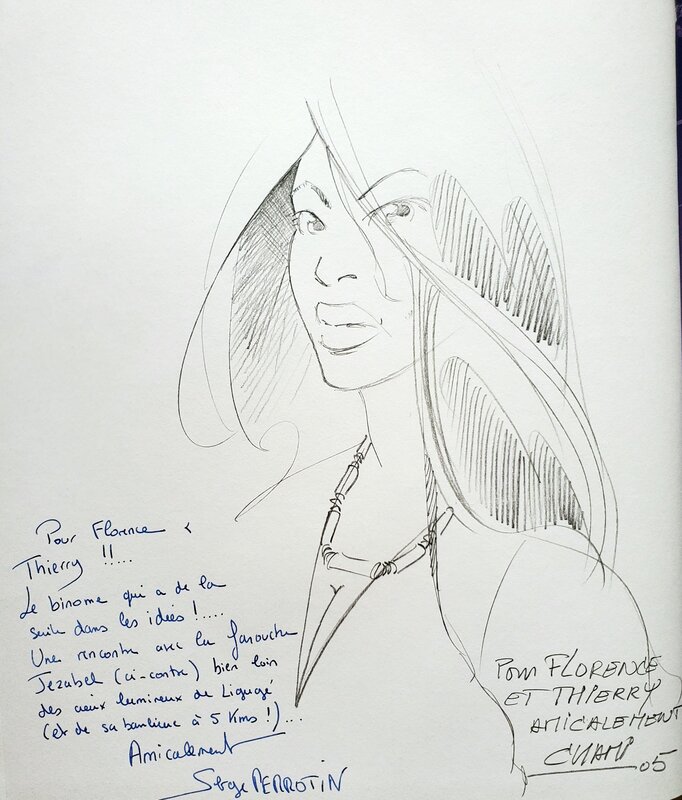 Pour Florence &
Thierry !!....
Le binome qui a de la
suite dans les idées !....
Une rencontre avec la farouche
Jezabel (ci-contre) bien loin
des cieux lumineux de Ligugé
(et de sa banlieue à 5 Kms !)...
Amicalement
Serge PERROTIN
Pour FLORENCE
ET THIERRY
AMICALEMENT
CHAMI
05